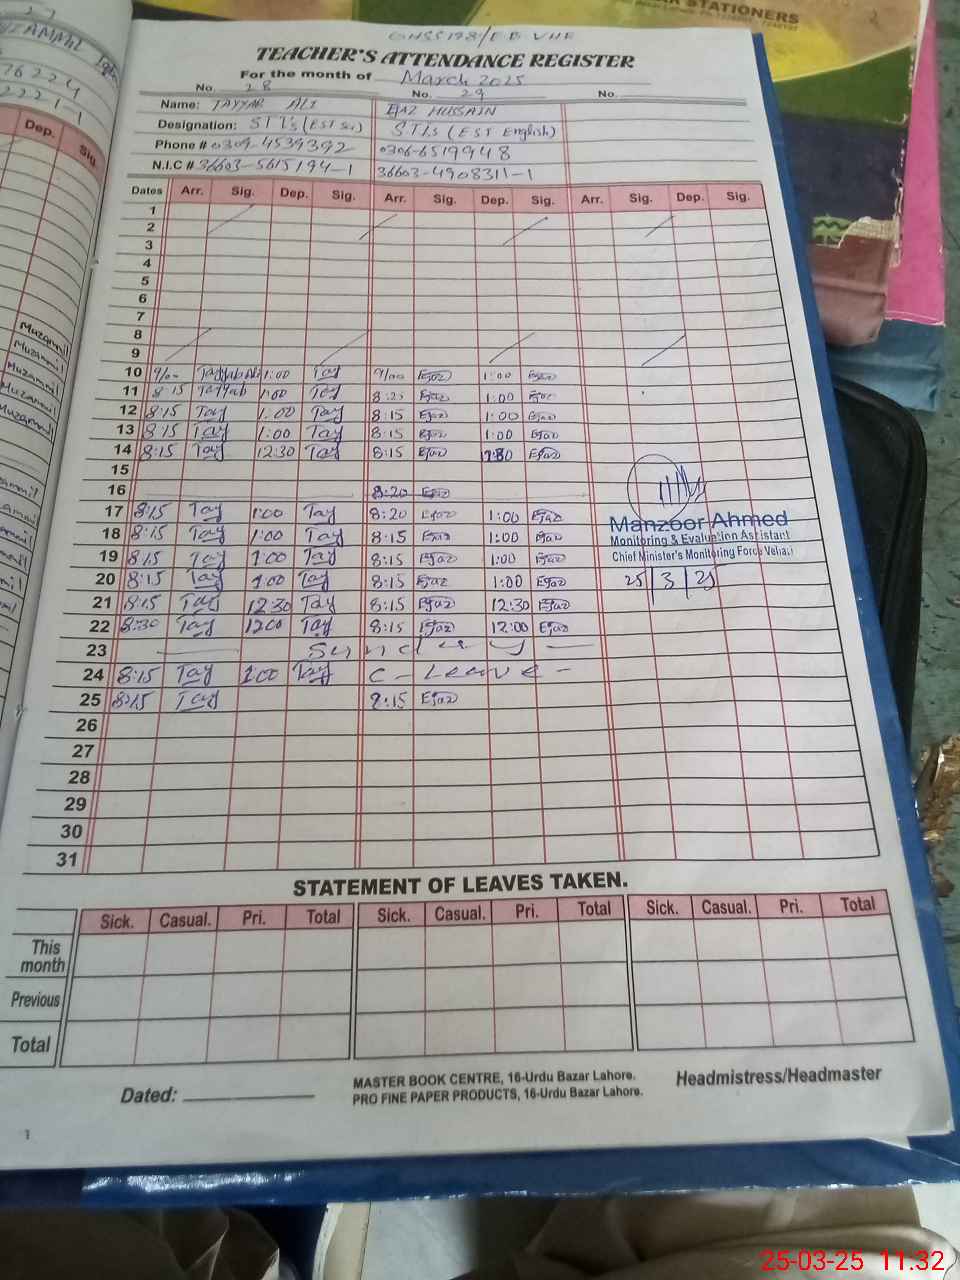 STATIONERS
GHSS 198/E.B. VHR
TEACHER'S ATTENDANCE REGISTER
For the month of March 2025
No. 28 No. 29 No.
Name: TAYYAB ALI EJAZ HUSSAIN
Designation: STI's (EST Sci) STI.s (EST English)
Phone # 0309-4539392 0306-6519948
N.I.C # 36603-5615194-1 36603-4908311-1
Dates Arr. Sig. Dep. Sig. Arr. Sig. Dep. Sig. Arr. Sig. Dep. Sig.
1
2
3
4
5
6
7
8
9
10 9/00 Tayyab Ali 1:00 Tay 9/00 Ejaz 1:00 Ejaz
11 8:15 Tayyab 1:00 Tay 8:25 Ejaz 1:00 Ejaz
12 8:15 Tay 1:00 Tay 8:15 Ejaz 1:00 Ejaz
13 8:15 Tay 1:00 Tay 8:15 Ejaz 1:00 Ejaz
14 8:15 Tay 12:30 Tay 8:15 Ejaz Ejaz
15
16 8:20 Ejaz
17 8:15 Tay 1:00 Tay 8:20 Ejaz 1:00 Ejaz
18 8:15 Tay 1:00 Tay 8:15 Ejaz 1:00 Ejaz
19 8:15 Tay 1:00 Tay 8:15 Ejaz 1:00 Ejaz
20 8:15 Tay 1:00 Tay 8:15 Ejaz 1:00 Ejaz
21 8:15 Tay 12:30 Tay 8:15 Ejaz 12:30 Ejaz
22 8:30 Tay 12:00 Tay 8:15 Ejaz 12:00 Ejaz
23 Sunday
24 8:15 Tay 1:00 Tay C- Leave -
25 8:15 Tay 8:15 Ejaz
26
27
28
29
30
31
Manzoor Ahmed
Monitoring & Evaluation Assistant
Chief Minister's Monitoring Force Vehari
25/3/25
STATEMENT OF LEAVES TAKEN.
Sick. Casual. Pri. Total Sick. Casual. Pri. Total Sick. Casual. Pri. Total
This month
Previous
Total
Dated:
MASTER BOOK CENTRE, 16-Urdu Bazar Lahore.
PRO FINE PAPER PRODUCTS, 16-Urdu Bazar Lahore.
Headmistress/Headmaster
1
Dep. Sig.
Muzammil
Muzammil
Muzammil
Muzammil
Muzammil
25-03-25 11:32